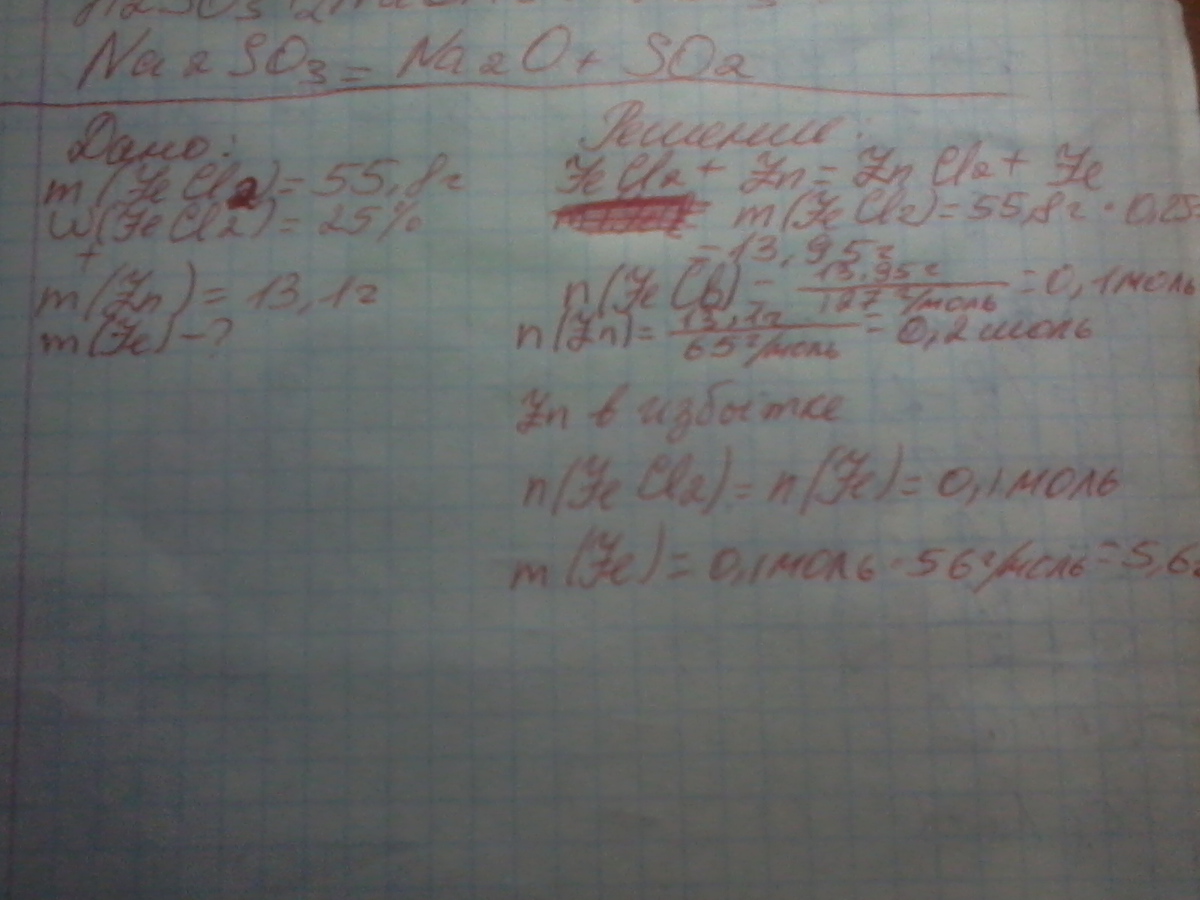 Na2SO3 = Na2O + SO2
Дано:
m(FeCl2) = 55,8г
w(FeCl2) = 25%
+
m(Zn) = 13,1г
m(Fe) - ?
Решение:
FeCl2 + Zn = ZnCl2 + Fe
m(FeCl2) = 55,8г · 0,25
= 13,95г
n(FeCl2) = 13,95г / 127 г/моль = 0,1 моль
n(Zn) = 13,1г / 65 г/моль = 0,2 моль
Zn в избытке
n(FeCl2) = n(Fe) = 0,1 моль
m(Fe) = 0,1 моль · 56 г/моль = 5,6г